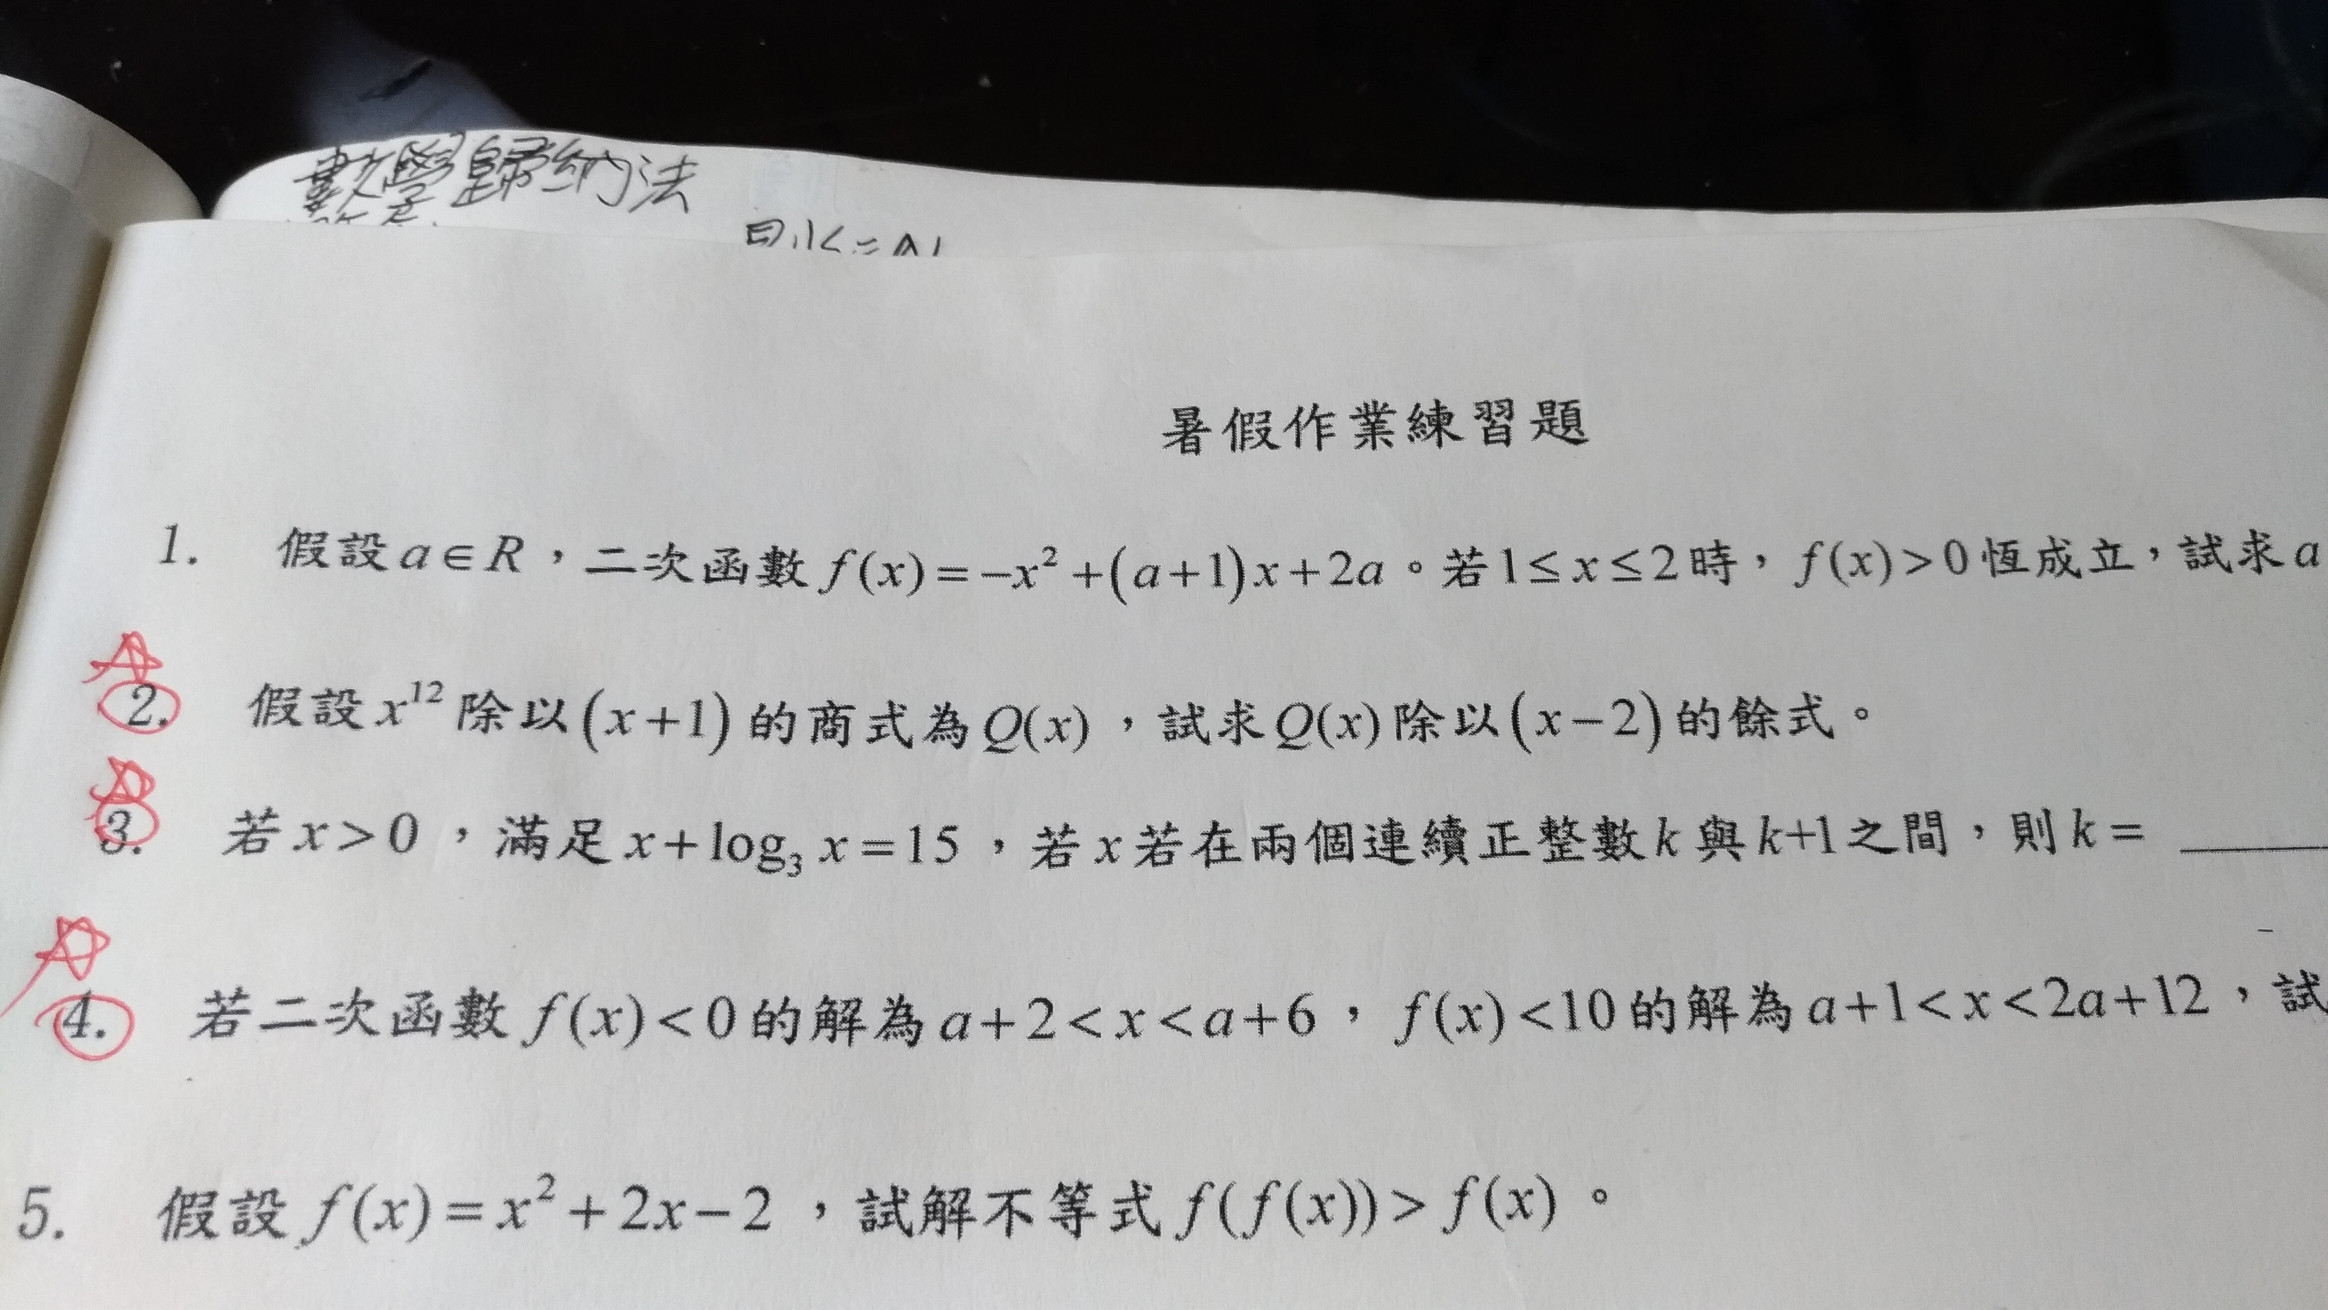 數學歸納法
暑假作業練習題
1. 假設a∈R，二次函數f(x)=−x²+(a+1)x+2a。若1≤x≤2時，f(x)>0恆成立，試求a
2. 假設x¹²除以(x+1)的商式為Q(x)，試求Q(x)除以(x−2)的餘式。
3. 若x>0，滿足x+log₃x=15，若x若在兩個連續正整數k與k+1之間，則k=____
4. 若二次函數f(x)<0的解為a+2<x<a+6，f(x)<10的解為a+1<x<2a+12，試
5. 假設f(x)=x²+2x−2，試解不等式f(f(x))>f(x)。